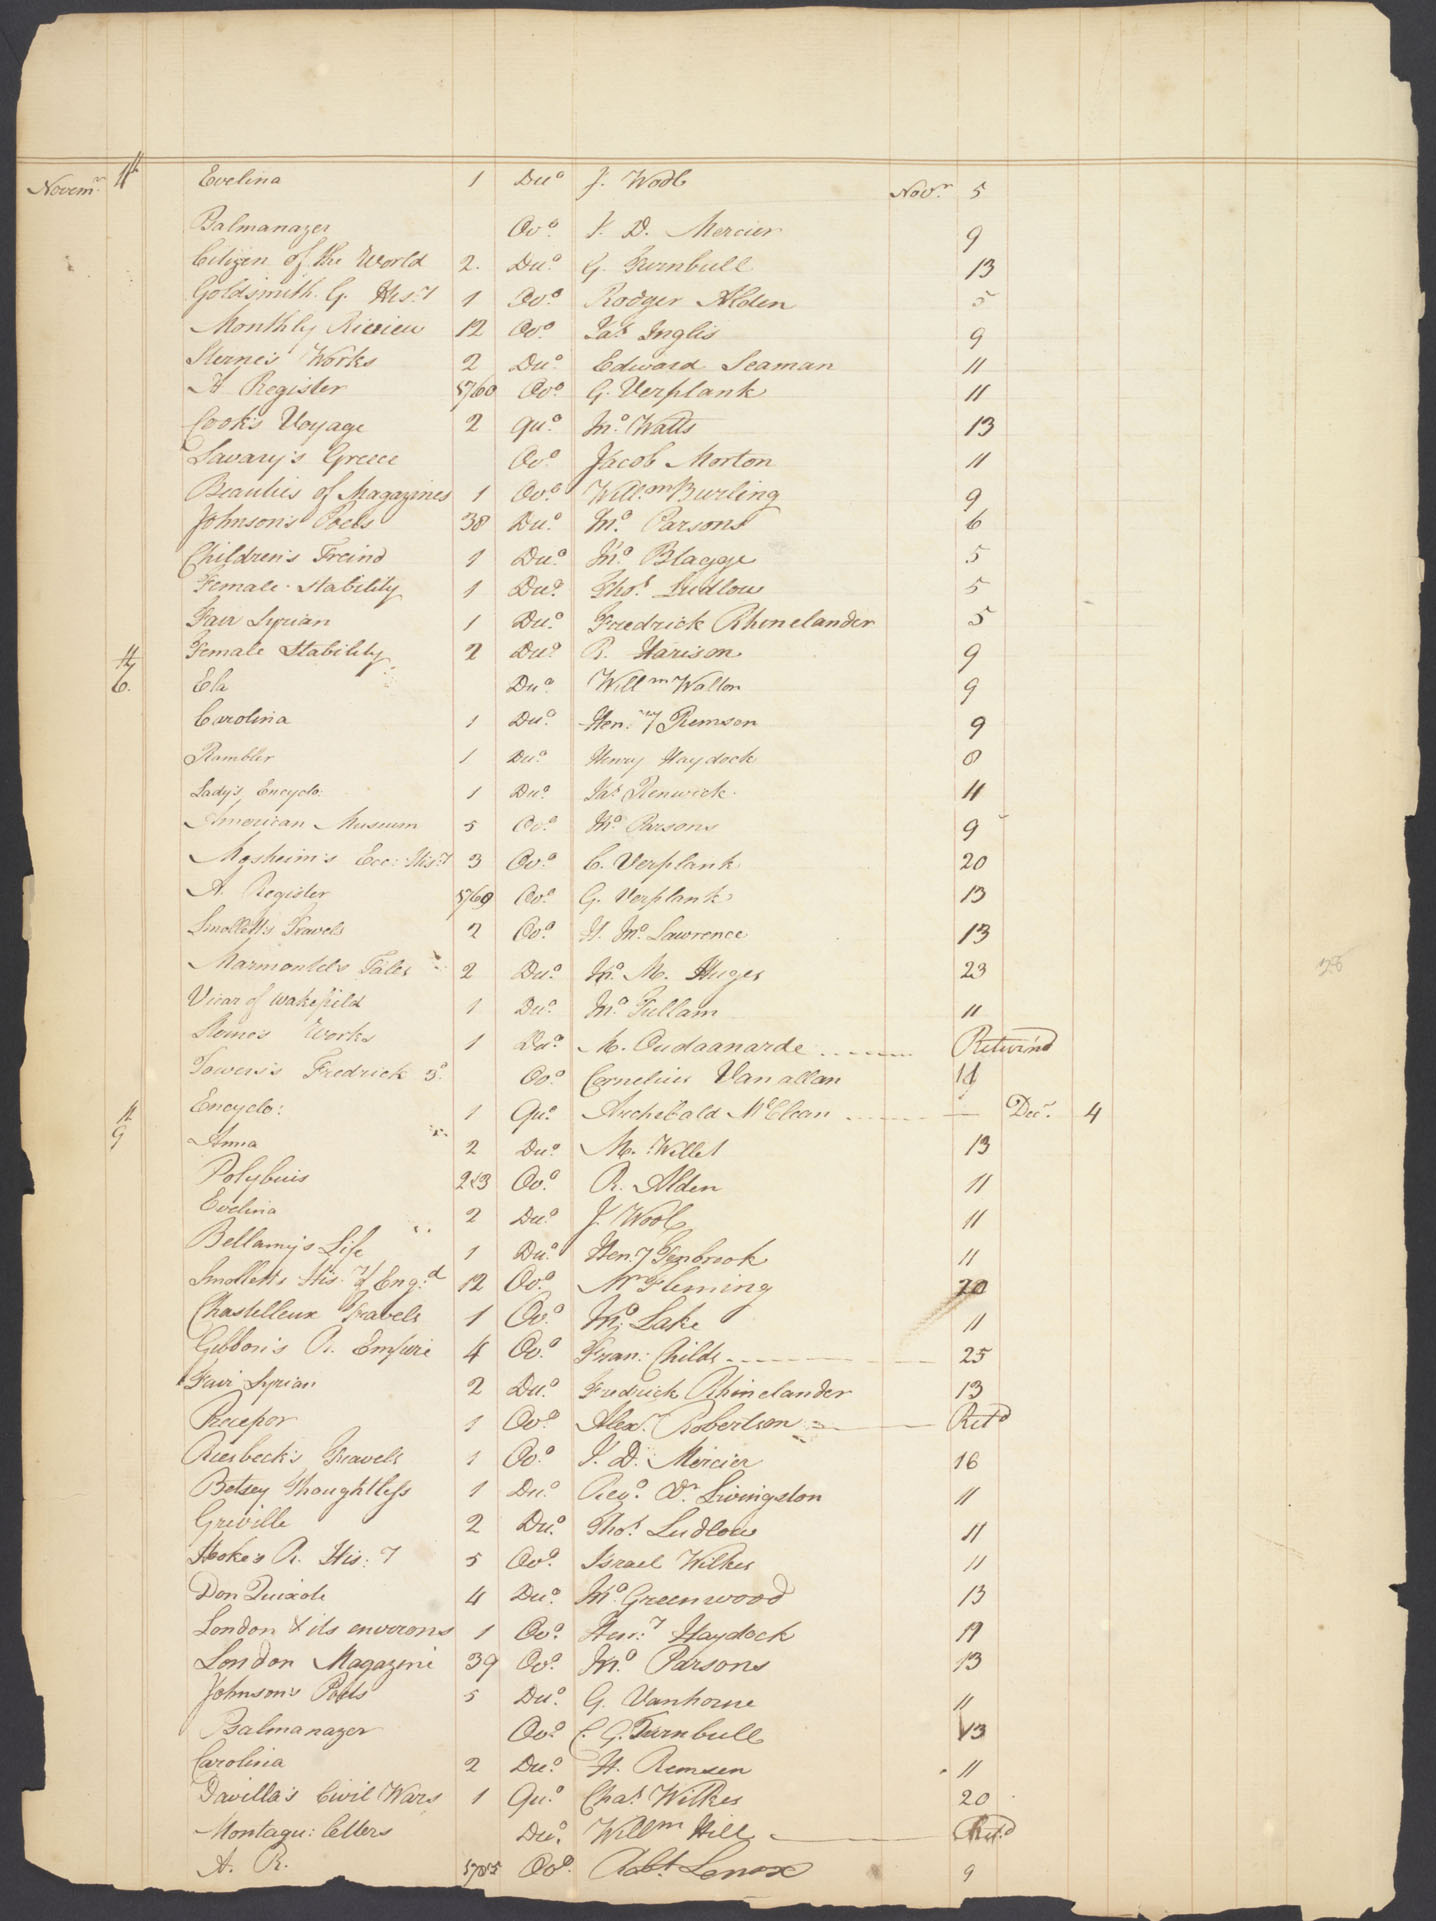 Novem.r 4 Evelina 1 Duo J. Wool Nov.r 5
Balmanazer Ovo J. D. Mercier 9
Citizen of the World 2. Duo G. Turnbull 13
Goldsmith. G. His:y 1 Ovo Rodger Alden 5
Monthly Rieview 12 Ovo Jas Inglis 9
Sterne's Works 2 Duo Edward Seaman 11
A Register 1760 Ovo G. Verplank 11
Cook's Voyage 2 quo Jno Watts 13
Savary's Greece Ovo Jacob Morton 11
Beauties of Magazines 1 Ovo Will:m Burling 9
Johnson's Poets 38 Duo Jno Parsons 6
Children's Freind 1 Duo Jno Blagge 5
Female Stability 1 Duo Thos Ludlow 5
Fair Syrian 1 Duo Fredrick Rhinelander 5
Female Stability 2 Duo R. Harison 9
6. Ela Duo Willm Walton 9
Carolina 1 Duo Hen:ry Remson 9
Rambler 1 Duo Henry Haydock 8
Lady's Encyclo: 1 Duo Jas Renwick 11
American Museum 5 Ovo Jno Parsons 9
Mosheim's Ecc: His:y 3 Ovo C. Verplank 20
A. Register 1760 Ovo G. Verplank 13
Smollett's Travels 2 Ovo Jno Lawrence 13
Marmontel's Tales 2 Duo Jno M. Huges 23
Vicar of Wakefield 1 Duo Jno Tullam 11
Sterne's Works 1 Duo M. Oudaanarde Return'd
Towers's Fredrick 3d Ovo Cornelius Vanallan
Encyclo: 1 Quo Archibald McClean Decr. 4
9 Anna 2 Duo M. Willet 13
Polybuis 2&3 Ovo R. Alden 11
Evelina 2 Duo J. Wool 11
Bellamy's Life 1 Duo Hen:y Tenbrook 11
Smollett's His:y of Eng:d 12 Ovo Mr Fleming 20
Chastelleux Travels 1 Ovo Jno Lake 11
Gibbon's R. Empire 4 Ovo Fran: Childs 25
Fair Syrian 2 Duo Fredrick Rhinelander 13
Precepor 1 Ovo Alexr Robertson Ret'd
Riesbeck's Travels 1 Ovo J. D. Mercier 16
Betsey Thoughtless 1 Duo Revd Dr Livingston 11
Greville 2 Duo Thos Ludlow 11
Hooke's R. His:y 5 Ovo Israel Wilkes 11
Don Quixote 4 Duo Jno Greenwood 13
London & its environs 1 Ovo Hen:y Haydock 19
London Magazine 39 Ovo Jno Parsons 13
Johnson's Poets 5 Duo G. Vanhorne 11
Balmanazer Ovo C. G. Turnbull 13
Carolina 2 Duo H. Remsen 11
Davilla's Civil Wars 1 Quo Chas Wilkes 20
Montagu: letters Duo Willm Hill Ret'd
A. R. 1785 Ovo Robt Lenox 9